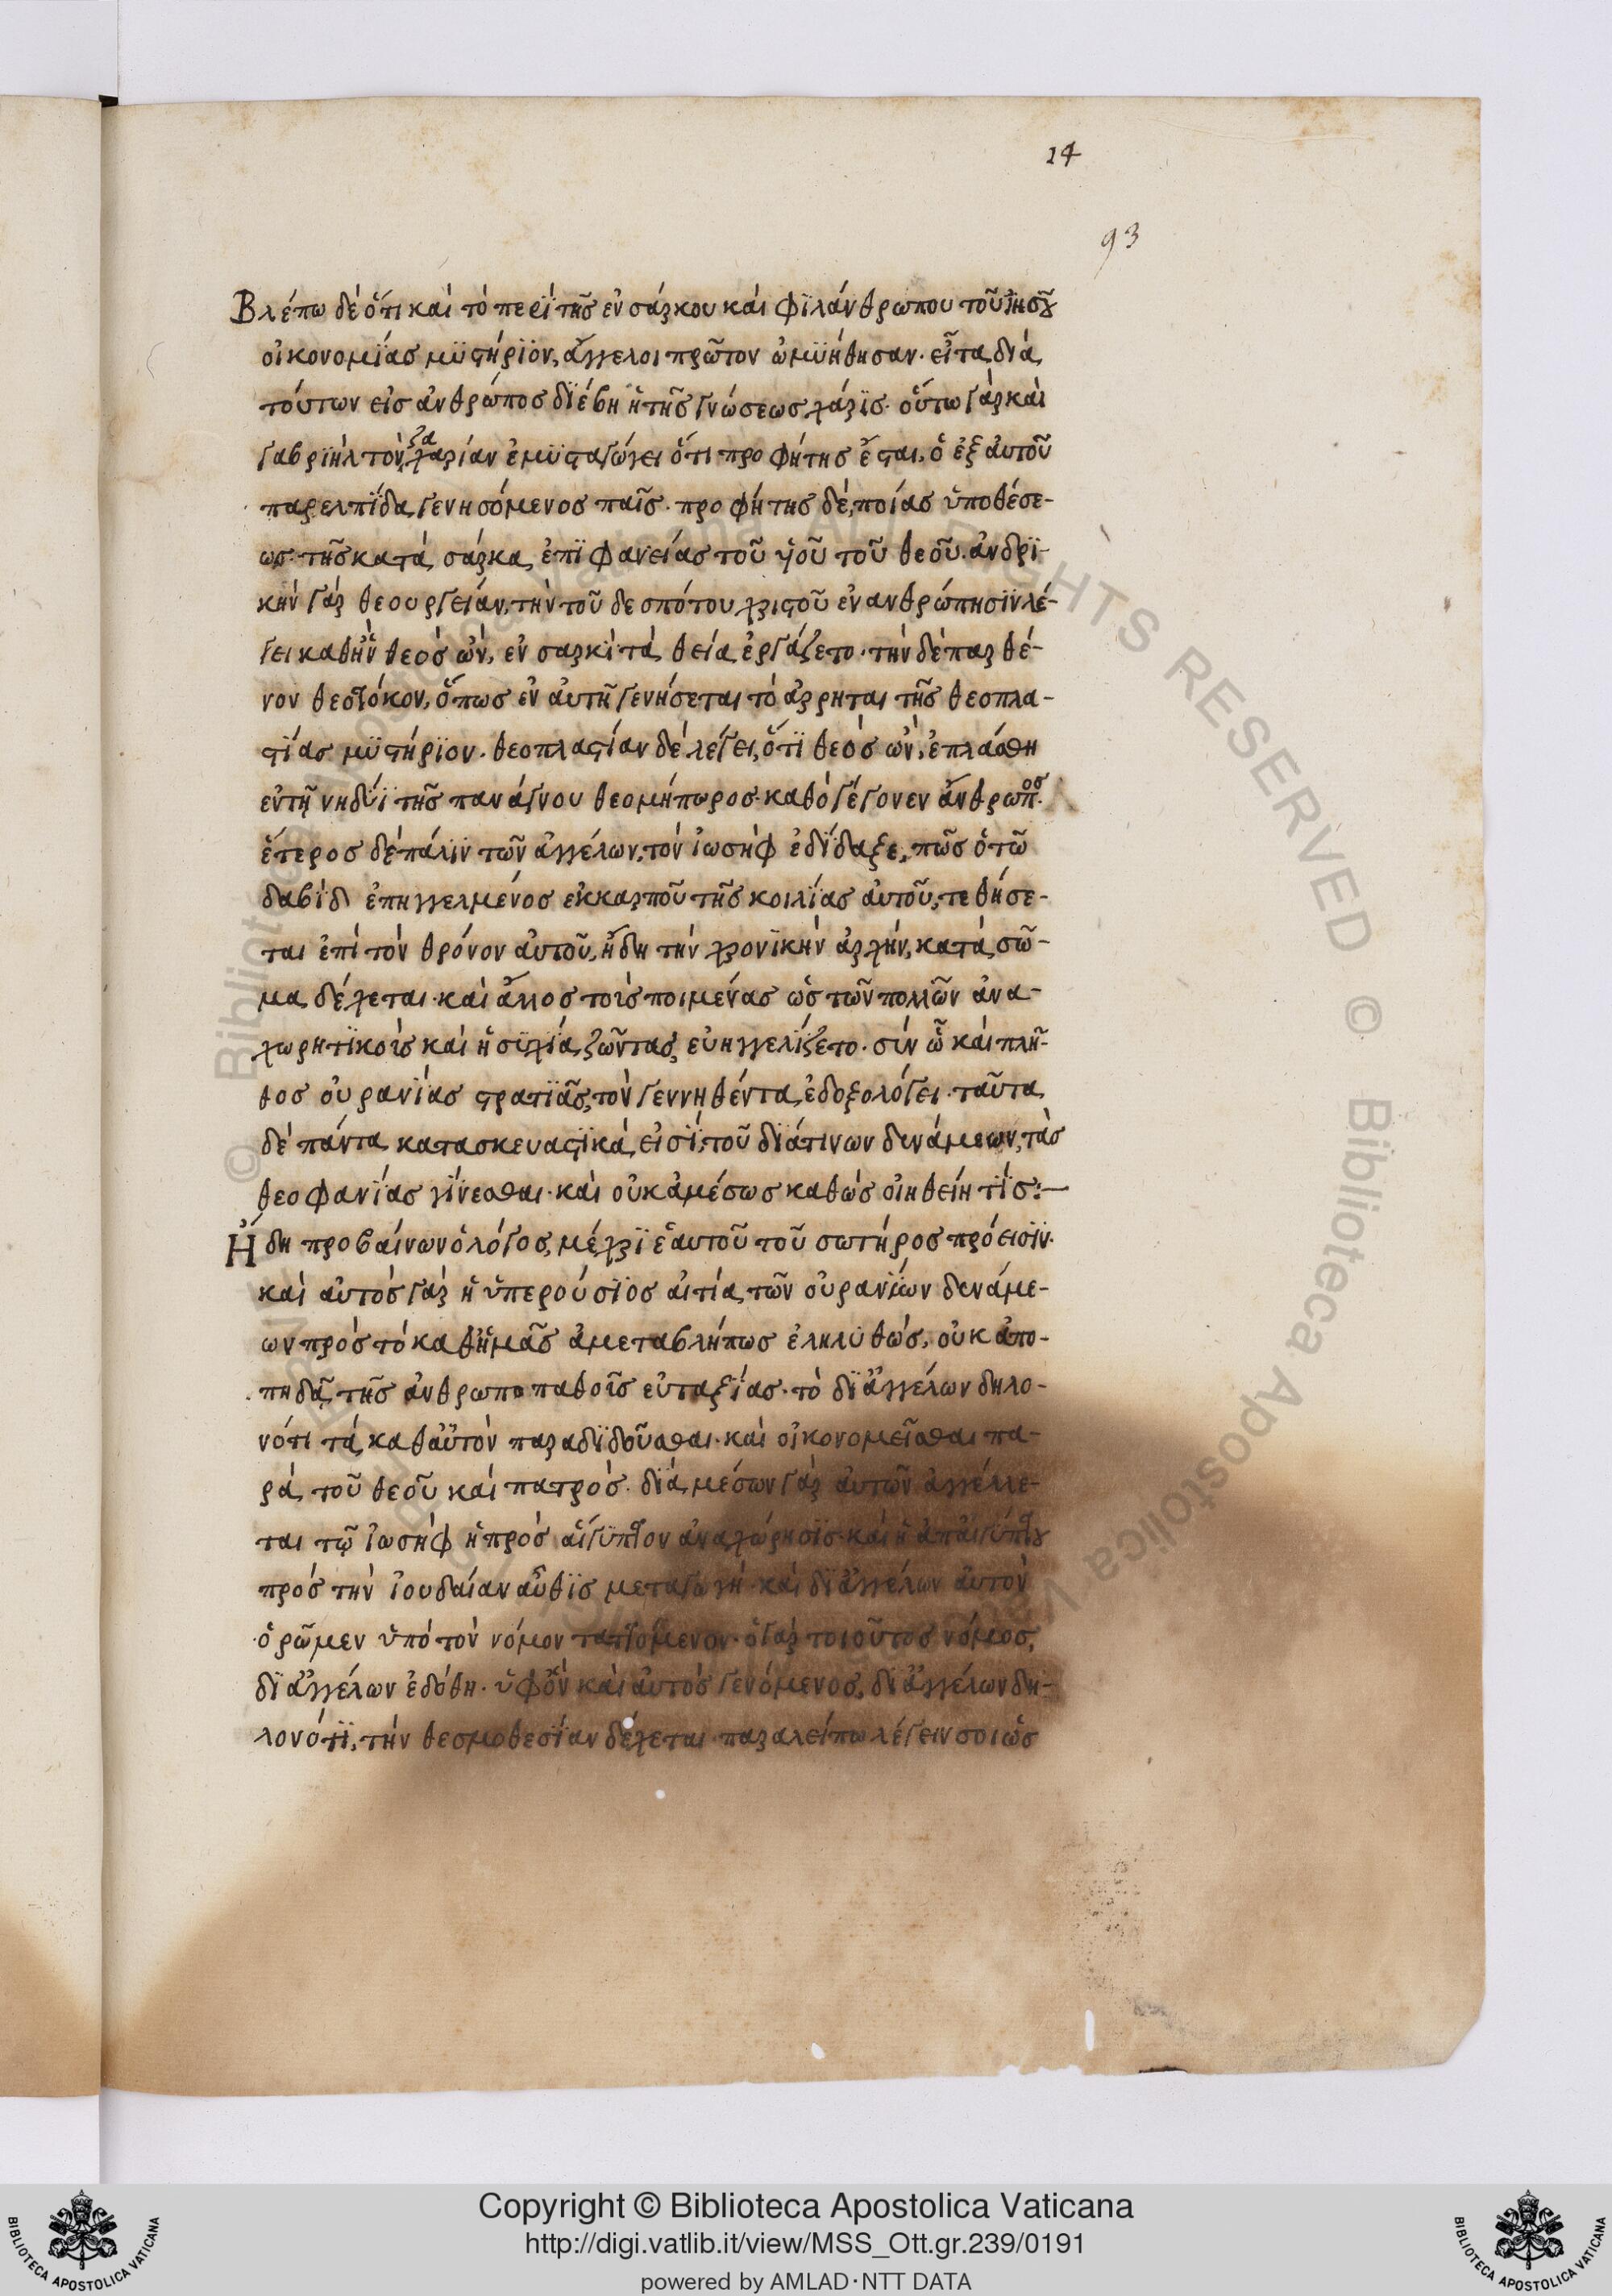 14
93
Βλέπω δὲ ὅτι καὶ τὸ περὶ τῆς ἐν σάρκου καὶ φϊλάνθρωπου τοῦ ἰησοῦ
οἰκονομίας μϋστήρϊον, ἄγγελοι πρῶτον ὠμϋήθησαν· εἶτα διὰ
τούτων εἰς ἀνθρώπος διέβη ἡ τῆς γνώσεως χάρϊς· οὕτω γὰρ καὶ
γαβρϊὴλ τὸν ζαχαρίαν ἐμϋσταγώγει ὅτι προφήτης ἔσται, ὁ ἐξ αὐτοῦ
παρελπίδα γενησόμενος παῖς· προφήτης δὲ, ποίας ὑποθέσε-
ως· τῆς κατὰ σάρκα ἐπϊφανείας τοῦ ὑοῦ τοῦ θεοῦ· ἀνδρϊ-
κὴν γὰρ θεουργείαν, τὴν τοῦ δεσπότου χριστοῦ ἐνανθρώπησϊν λέ-
γει καθἣν θεὸς ὢν, ἐν σαρκὶ τὰ θεία ἐργάζετο· τὴν δὲ παρθέ-
νον θεοτόκον, ὅπως ἐν αὐτῆ γενήσεται τὸ ἄρρηται τῆς θεοπλα-
στίας μϋστήρϊον· θεοπλαστίαν δὲ λέγει, ὅτϊ θεὸς ὢν, ἐπλάσθη
ἐν τῇ νηδύϊ τῆς πανάγνου θεομήτωρος· καθὸ γέγονεν ἄνθρωπος·
ἕτερος δὲ πάλϊν τῶν ἀγγέλων, τὸν ἰωσὴφ ἐδίδαξε, πῶς ὁ τῶ
δαβὶδ ἐπηγγελμένος ἐκ καρποῦ τῆς κοιλίας αὐτοῦ, τεθήσε-
ται ἐπὶ τὸν θρόνον αὐτοῦ, ἤδη τὴν χρονϊκὴν ἀρχήν, κατὰ σῶ-
μα δέχεται· καὶ ἄλλος τοὶς ποιμένας ὡς τῶν πολλῶν ἀνα-
χωρητϊκοὶς καὶ ἡσϊχία ζῶντας, εὐηγγελίζετο· σὶν ὧ καὶ πλῆ-
θος οὐρανίας στρατϊᾶς, τὸν γεννηθέντα ἐδοξολόγει· ταῦτα
δὲ πάντα κατασκευαστϊκά εἰσϊ, τοῦ διάτινων δινάμεων, τὰς
θεοφανίας γίνεσθαι· καὶ οὐκ ἀμέσως καθὼς οἰηθείη τίς:—
Ἤδη προβαίνων ὁ λόγος, μέχρϊ ἑαυτοῦ τοῦ σωτήρος πρόεισϊν·
καὶ αὐτὸς γὰρ ἡ ὑπερούσϊος αἰτία τῶν οὐρανίων δενάμε-
ων πρὸς τὸ καθἡμᾶς ἀμεταβλήτως ἐληλϋθώς, οὐκ ἀπο-
πηδᾷ τῆς ἀνθρωποπαθοῖς εὐταξίας· τὸ δϊ ἀγγέλων δηλο-
νότι τὰ καθαὑτὸν παραδϊδοῦσθαι· καὶ οἰκονομεῖσθαι πα-
ρὰ τοῦ θεοῦ καὶ πατρός· διὰ μέσων γὰρ αὐτῶν ἀγγέλλε-
ται τῷ ἰωσὴφ ἡ πρὸς αἴγϋπτον ἀναχώρησϊς· καὶ ἡ ἀπαἰγύπτου
πρὸς τὴν ἰουδαίαν αὖθϊς μεταγωγή· καὶ δϊ ἀγγέλων αὐτὸν
ὁρῶμεν ὑπὸ τὸν νόμον ταττόμενον· ὁ γὰρ τοιοῦτος νόμος,
δϊ ἀγγέλων ἐδόθη· ὑφὃν καὶ αὐτὸς γενόμενος, δϊ ἀγγέλων δη-
λονότϊ, τὴν θεσμοθεσίαν δέχεται· παραλείπω λέγειν σοι ὡς
Copyright © Biblioteca Apostolica Vaticana
http://digi.vatlib.it/view/MSS_Ott.gr.239/0191
powered by AMLAD·NTT DATA
BIBLIOTECA APOSTOLICA VATICANA
BIBLIOTECA APOSTOLICA VATICANA